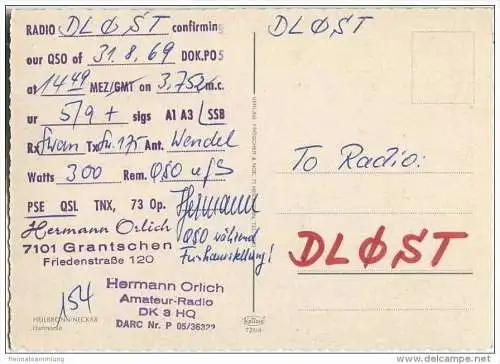 RADIO DLØST confirming
our QSO of 31.8.69 DOK.P05
at 14⁴⁹ MEZ/GMT on 3,752 m.c.
ur 5/9+ sigs A1 A3 / SSB
Rx Swan Tx Sw.175 Ant. Wendel
Watts 300 Rem. QSO
PSE QSL TNX, 73 Op. Hermann
Hermann Orlich
7101 Grantschen
Friedenstraße 120
QSO während
Funkausstellung!
154
Hermann Orlich
Amateur-Radio
DK 3 HQ
DARC Nr. P 05/36322
HEILBRONN/NECKAR
DLØST
To Radio:
DLØST
heimatsammlung.de